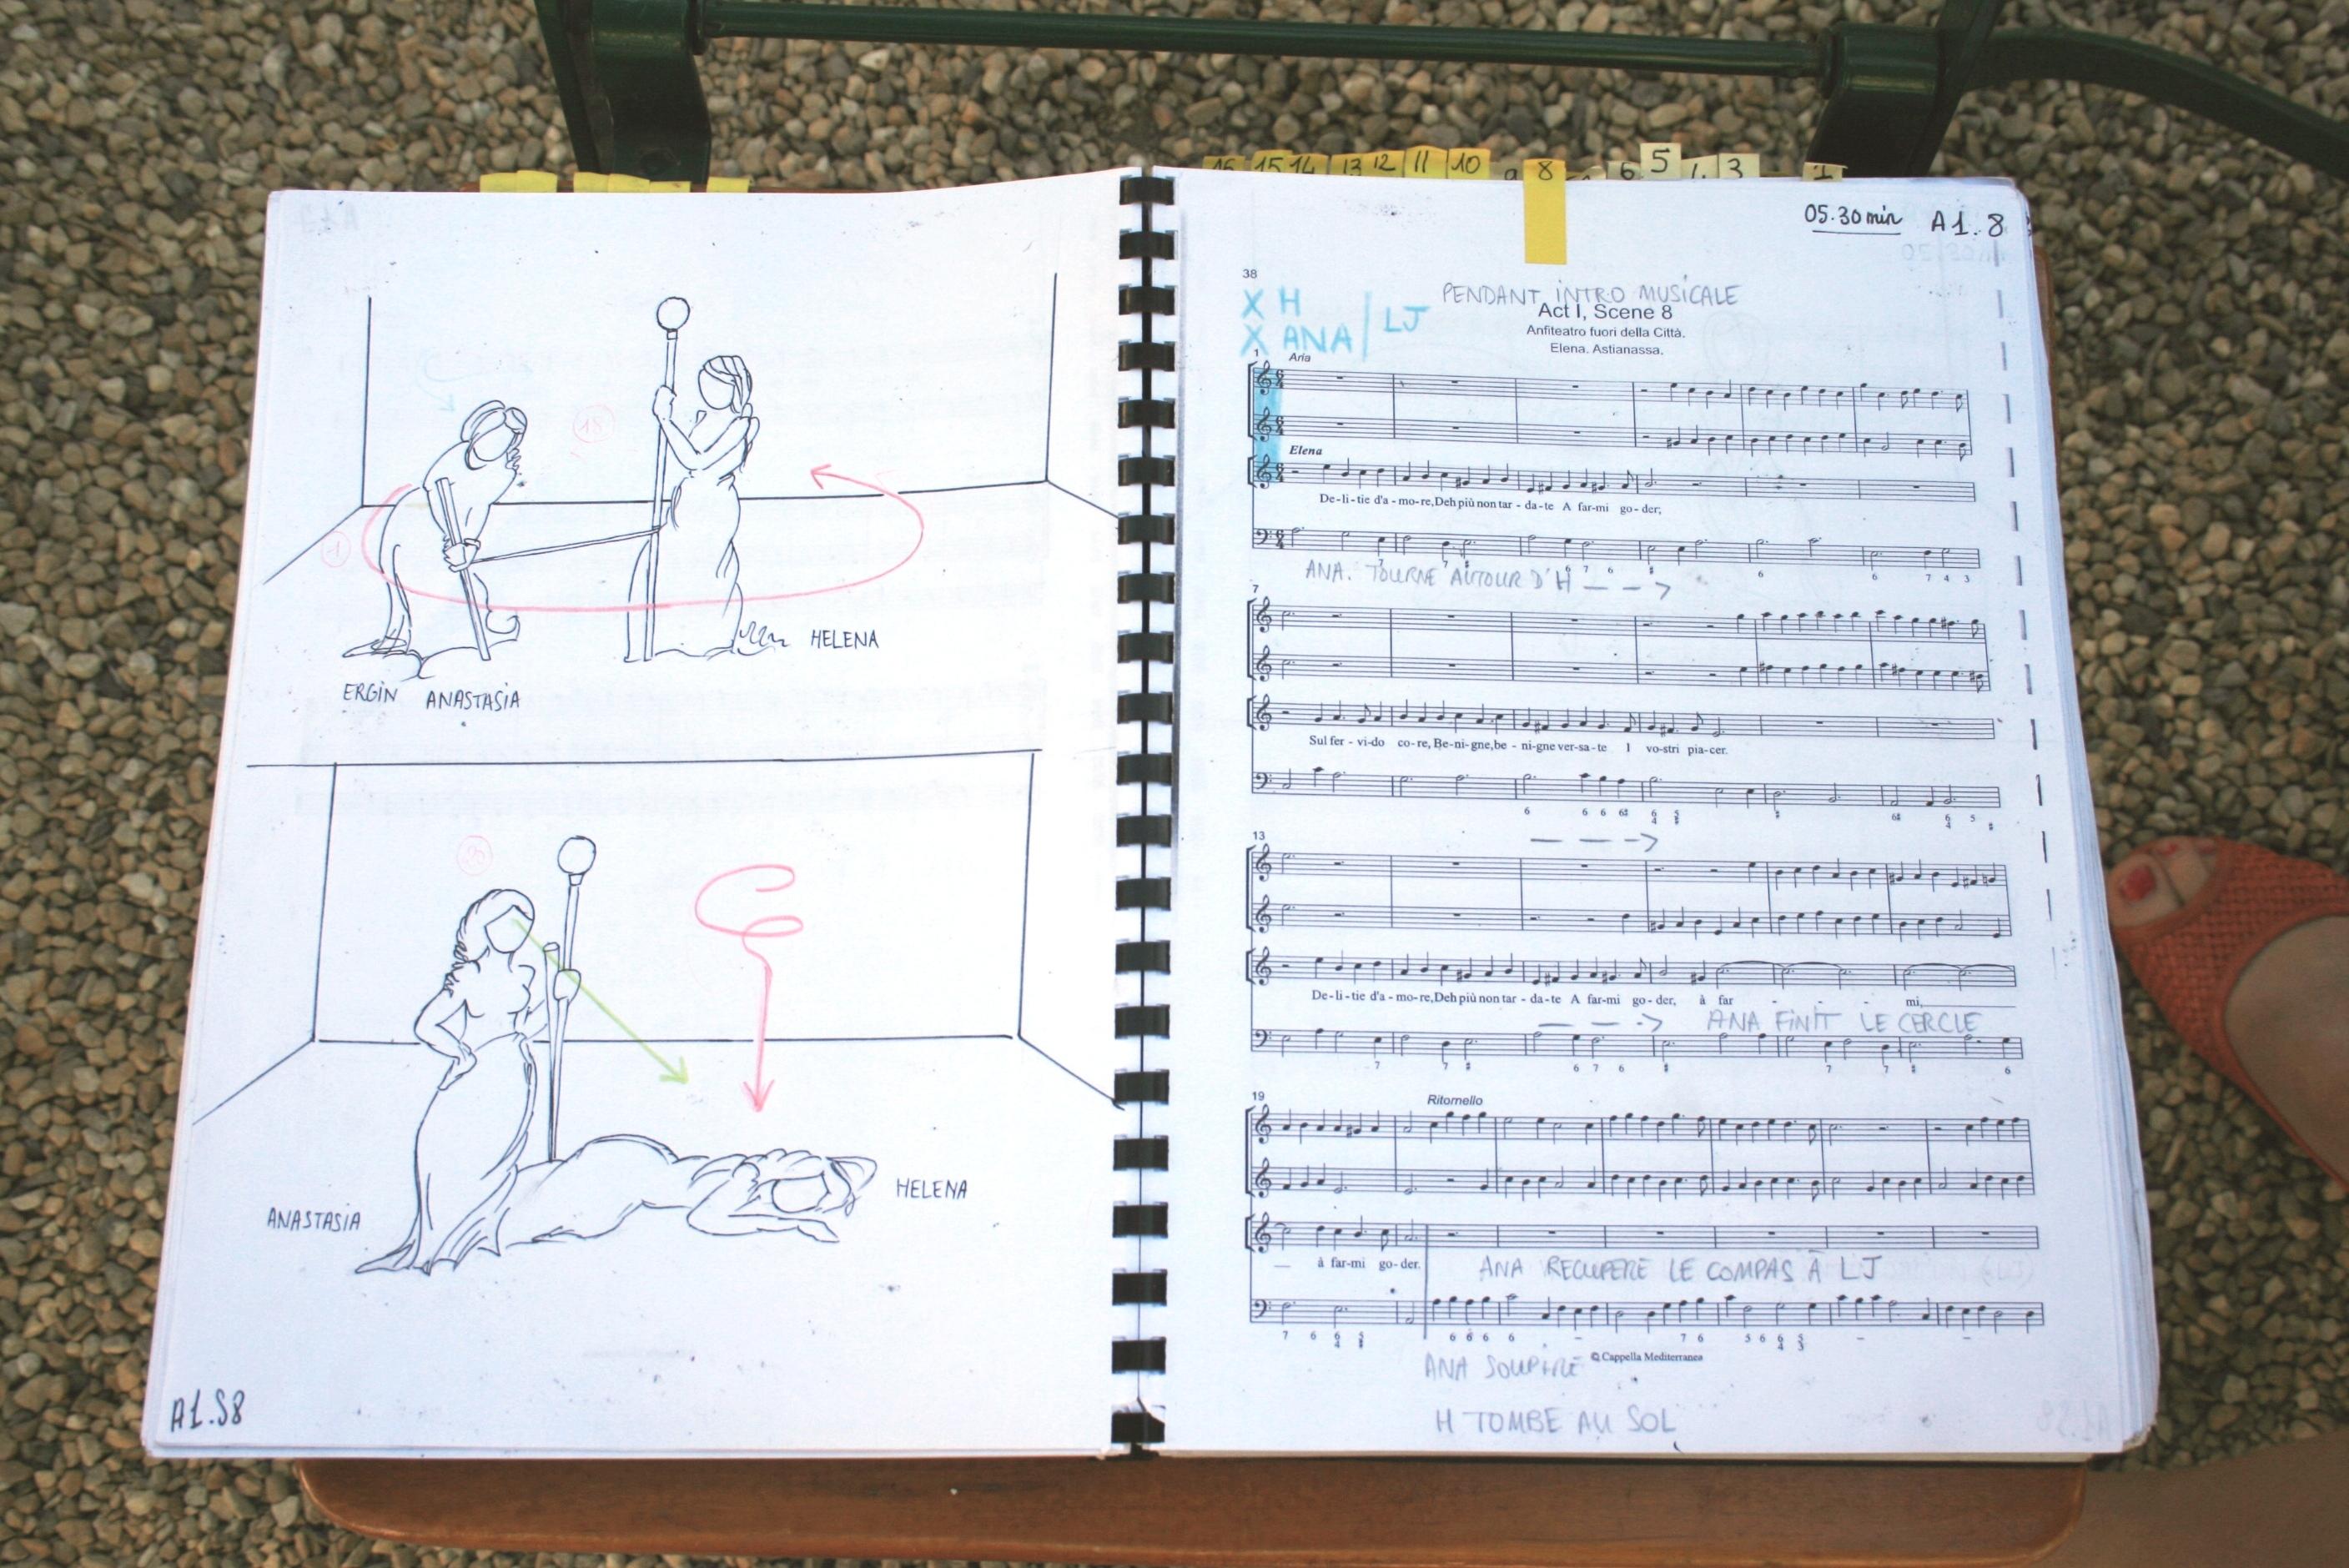 18
1
HELENA
ERGIN ANASTASIA
20
HELENA
ANASTASIA
A1.S8
15 14 13 12 11 10 8 6 5 3 1
05.30 min A1.8
38
X H
X ANA LJ
PENDANT INTRO MUSICALE
Act I, Scene 8
Anfiteatro fuori della Città.
Elena. Astianassa.
1 Aria
Elena
De-li-tie d'a-mo-re, Deh più non tar-da-te A far-mi go-der;
6 7 6 6 6 7 4 3
ANA. TOURNE AUTOUR D'H - - ->
7
Sul fer-vi-do co-re, Be-ni-gne, be-ni-gne ver-sa-te I vo-stri pia-cer.
13
De-li-tie d'a-mo-re, Deh più non tar-da-te A far-mi go-der, à far - - - mi,
ANA FINIT LE CERCLE
7 7 6 7 6 7 7 6
19
Ritornello
à far-mi go-der.
ANA RECUPERE LE COMPAS À LJ
© Cappella Mediterranea
ANA SOUPIRE
H TOMBE AU SOL